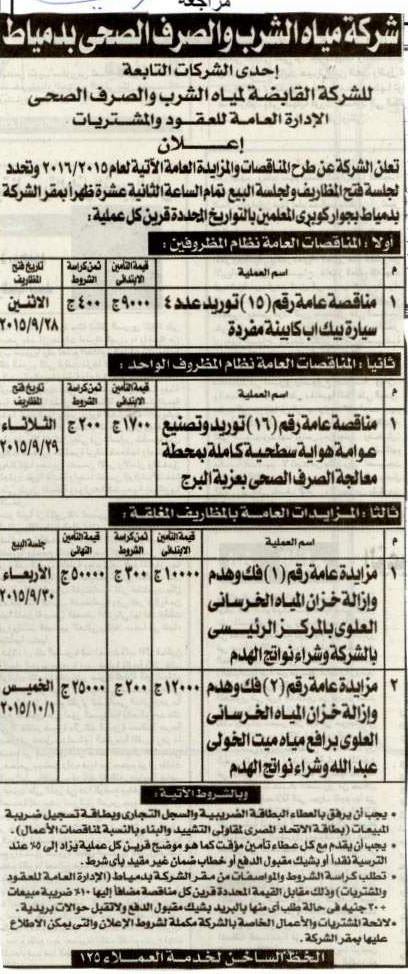 مراجعة
شركة مياه الشرب والصرف الصحى بدمياط
إحدى الشركات التابعة
للشركة القابضة لمياه الشرب والصرف الصحى
الإدارة العامة للعقود والمشتريات
إعلان
تعلن الشركة عن طرح المناقصات والمزايدة العامة الآتية لعام ٢٠١٦/٢٠١٥ وتحدد
لجلسة فتح المظاريف ولجلسة البيع تمام الساعة الثانية عشرة ظهراً بمقر الشركة
بدمياط بجوار كوبرى المعلمين بالتواريخ المحددة قرين كل عملية:
أولا: المناقصات العامة نظام المظروفين:
م اسم العملية قيمة التأمين الابتدائى ثمن كراسة الشروط تاريخ فتح المظاريف
١ مناقصة عامة رقم (١٥) توريد عدد ٤ ٩٠٠٠ ج ٤٠٠ ج الاثنين
سيارة بيك اب كابينة مفردة ٢٠١٥/٩/٢٨
ثانياً: المناقصات العامة نظام المظروف الواحد:
م اسم العملية قيمة التأمين الابتدائى ثمن كراسة الشروط تاريخ فتح المظاريف
١ مناقصة عامة رقم (١٦) توريد وتصنيع ١٧٠٠ ج ٢٠٠ ج الثلاثاء
عوامة هواية سطحية كاملة بمحطة ٢٠١٥/٩/٢٩
معالجة الصرف الصحى بعزبة البرج
ثالثا: المزايدات العامة بالمظاريف المغلقة:
م اسم العملية قيمة التأمين الابتدائى ثمن كراسة الشروط قيمة التأمين النهائى جلسة البيع
١ مزايدة عامة رقم (١) فك وهدم ١٠٠٠٠ ج ٣٠٠ ج ٥٠٠٠٠ ج الأربعاء
وإزالة خزان المياه الخرسانى ٢٠١٥/٩/٣٠
العلوى بالمركز الرئيسى
بالشركة وشراء نواتج الهدم
٢ مزايدة عامة رقم (٢) فك وهدم ١٢٠٠٠ ج ٢٠٠ ج ٢٥٠٠٠ ج الخميس
وإزالة خزان المياه الخرسانى ٢٠١٥/١٠/١
العلوى برافع مياه ميت الخولى
عبد الله وشراء نواتج الهدم
وبالشروط الآتية:
• يجب أن يرفق بالعطاء البطاقة الضريبية والسجل التجارى وبطاقة تسجيل ضريبة
المبيعات (بطاقة الاتحاد المصرى لمقاولى التشييد والبناء بالنسبة لمناقصات الأعمال).
• يجب أن يقدم مع كل عطاء تأمين مؤقت كما هو موضح قرين كل عملية يزاد إلى ٥٪ عند
الترسية نقداً أو بشيك مقبول الدفع أو خطاب ضمان غير مقيد بأى شرط.
• تطلب كراسة الشروط والمواصفات من مقر الشركة بدمياط (الإدارة العامة للعقود
والمشتريات) وذلك مقابل القيمة المحددة قرين كل مناقصة مضافاً إليها ١٠٪ ضريبة مبيعات
+ ٣٠ جنيه فى حالة طلب أى منها بالبريد بشيك مقبول الدفع ولا تقبل حوالات بريدية.
• لائحة المشتريات والأعمال الخاصة بالشركة مكملة لشروط الإعلان والتى يمكن الاطلاع
عليها بمقر الشركة.
الخط الساخن لخدمة العملاء ١٢٥